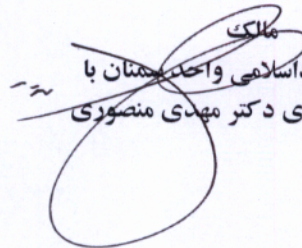 مالک
اسلامی واحد سمنان با
ی دکتر مهدی منصوری